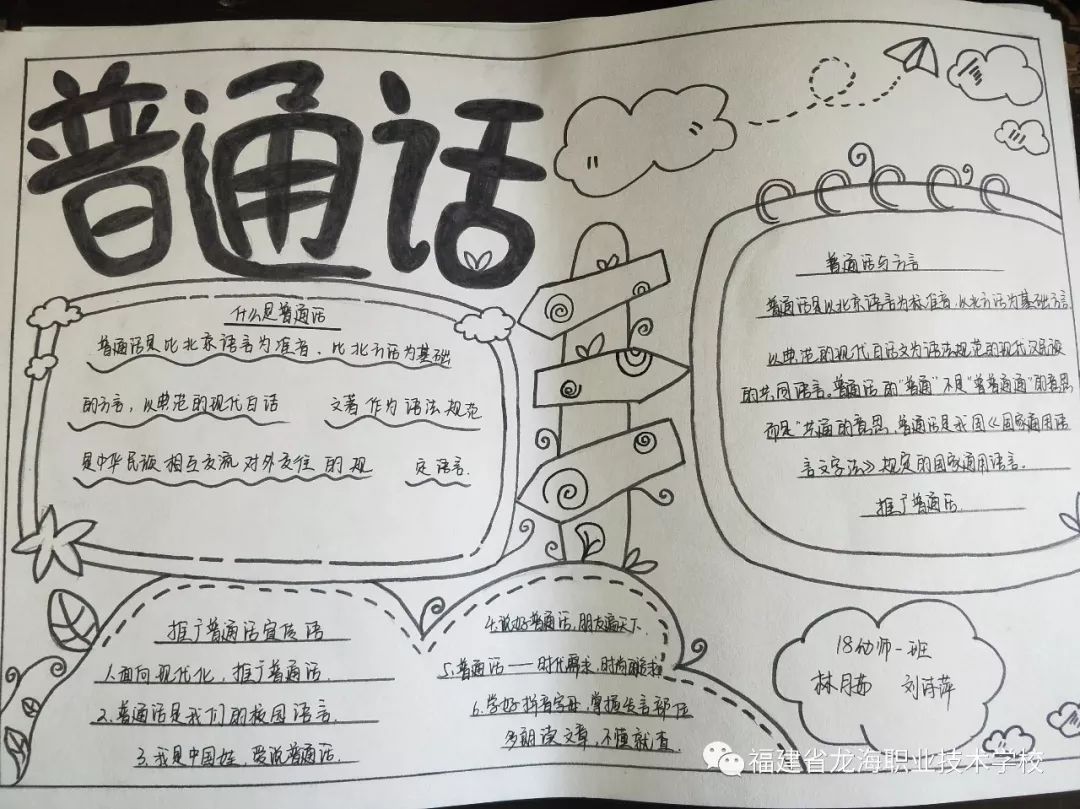 普通话
什么是普通话
普通话是比北京语言为准音，比北方话为基础
的方言，以典范的现代白话 文著作为语法规范
是中华民族相互交流对外交往的规 定语言.
普通话与方言
普通话是以北京语言为标准音，以北方话为基础方言
以典范的现代白话文为语法规范的现代汉民族
的共同语言。普通话的"普通"不是"普普通通"的意思
而是"共通的意思，普通话是我国《国家通用语
言文字法》规定的国家通用语言.
推广普通话.
推广普通话宣传语
1.面向现代化，推广普通话.
2.普通话是我们的校园语言.
3.我是中国娃，爱说普通话.
4.说好普通话，朋友遍天下.
5.普通话——时代需求，时尚追求
6.学好拼音字母，掌握发言部位
多朗读文章，不懂就查.
18幼师一班
林月茹 刘诗萍
福建省龙海职业技术学校